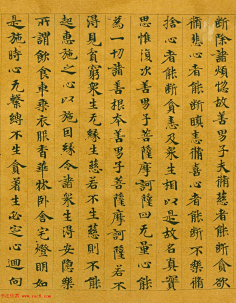 斷除諸煩惱故善男子夫脩慈者能斷貪欲
脩悲心者能斷瞋恚脩喜心者能斷不樂脩
捨心者能斷貪恚及眾生相以是故名真實
思惟復次善男子菩薩摩訶薩四无量心能
為一切諸善根本善男子菩薩摩訶薩若不
得見貧窮眾生无緣生慈若不生慈則不能
起惠施之心以施因緣令諸眾生得安隱樂
所謂飲食車乘衣服香華床臥舍宅燈明如
是施時心无繫縛不生貪著必定心迴向